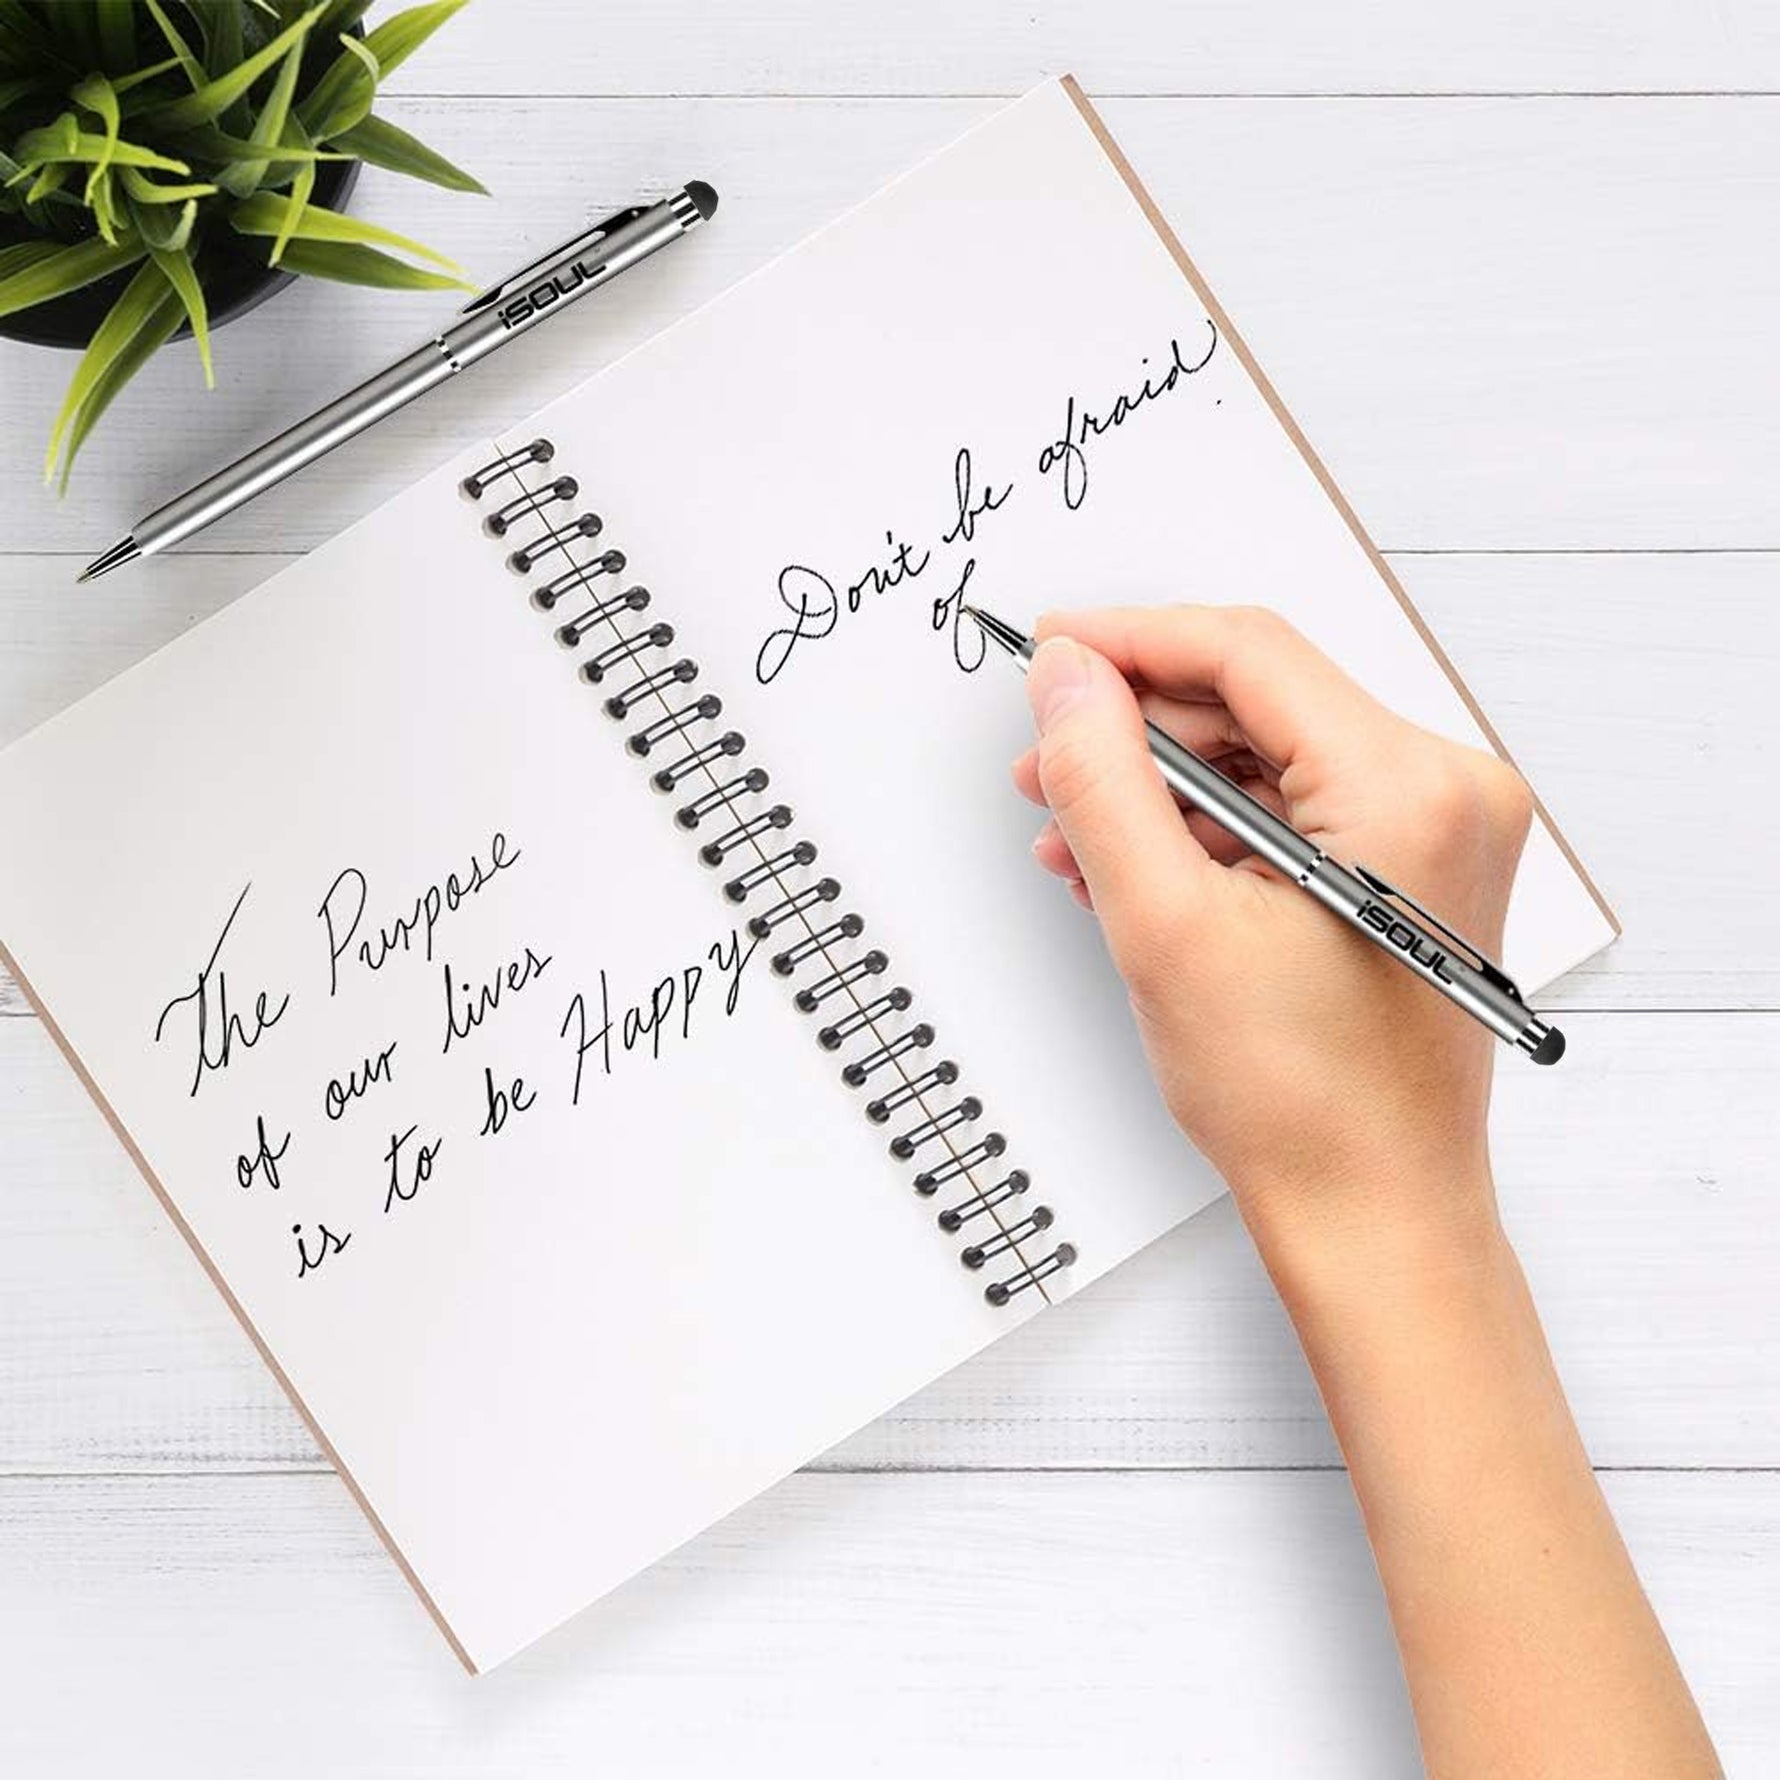 iSOUL
The Purpose
of our lives
is to be Happy
Don't be afraid
of
iSOUL